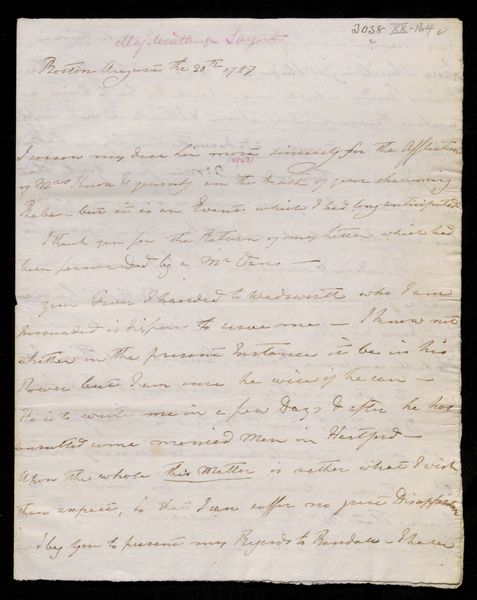 3038 XX-164
Maj. Winthrop Sargent
Boston August the 20th 1787
I sorrow my dear Sir most sincerely for the Affliction
of Mrs Knox & yourself in the Death of your charming
Babe - but it is an Event which I had long anticipated
I thank you for the Return of my Letter which had
been forwarded by a Mr
Your Favor I handed to Wadsworth who I am
persuaded is dispos'd to serve me - I know not
whether in the present Instance it be in his
Power but I am sure he will if he can -
He is to write me in a few Days & after he has
consulted some monied Men in Hartford -
Upon the whole this Matter is rather what I wish
than expect, so that I can suffer no great Disappointm
I beg you to present my Regards to Randall - I have